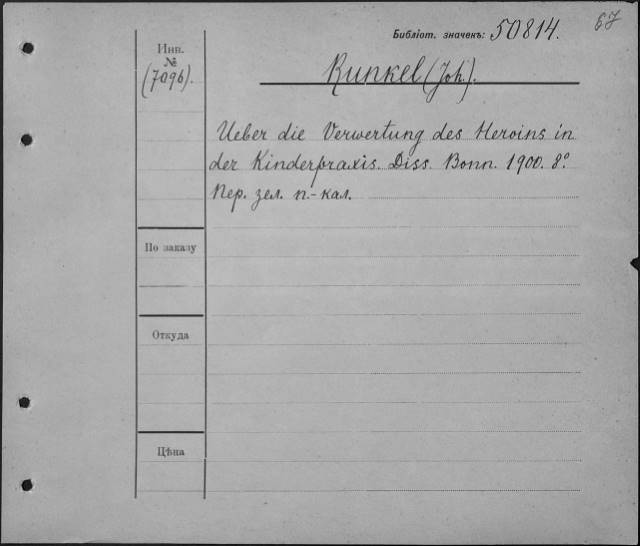 67
Библіот. значекъ: 50814.
Инв.
№
(7096).
Runkel (Joh.).
Ueber die Verwertung des Heroins in
der Kinderpraxis. Diss. Bonn. 1900. 8°.
Пер. зел. п.-кал.
По заказу
Откуда
Цѣна